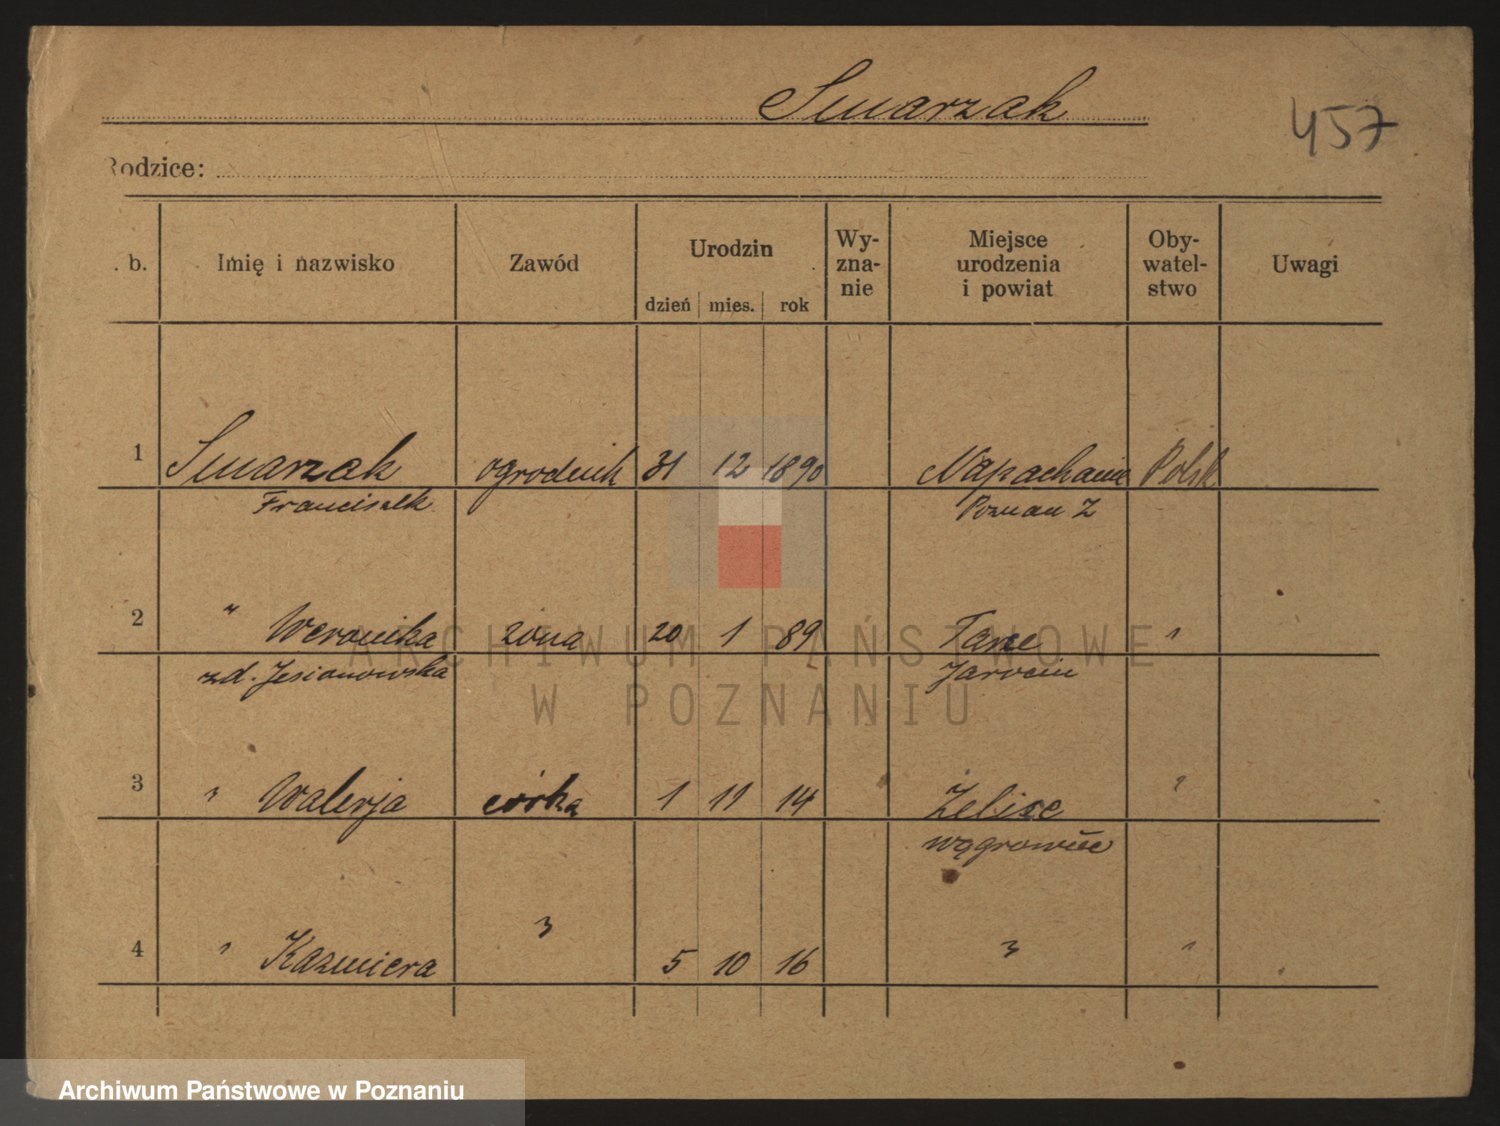 Smarzak
457
Rodzice:
. b. Imię i nazwisko Zawód Urodzin Wy- Miejsce Oby- Uwagi
zna- urodzenia watel-
nie i powiat stwo
dzień mies. rok
1 Smarzak ogrodnik 31 12 1890 Napachanie Polsk
Franciszek Poznań Z
2 " Weronika żona 20 1 89 Tarce "
zd. Jesionowska Jarocin
3 " Walerja córka 1 11 14 Żelice "
Wągrowiec
4 " Kazmiera " 5 10 16 " "
ARCHIWUM PAŃSTWOWE
W POZNANIU
Archiwum Państwowe w Poznaniu